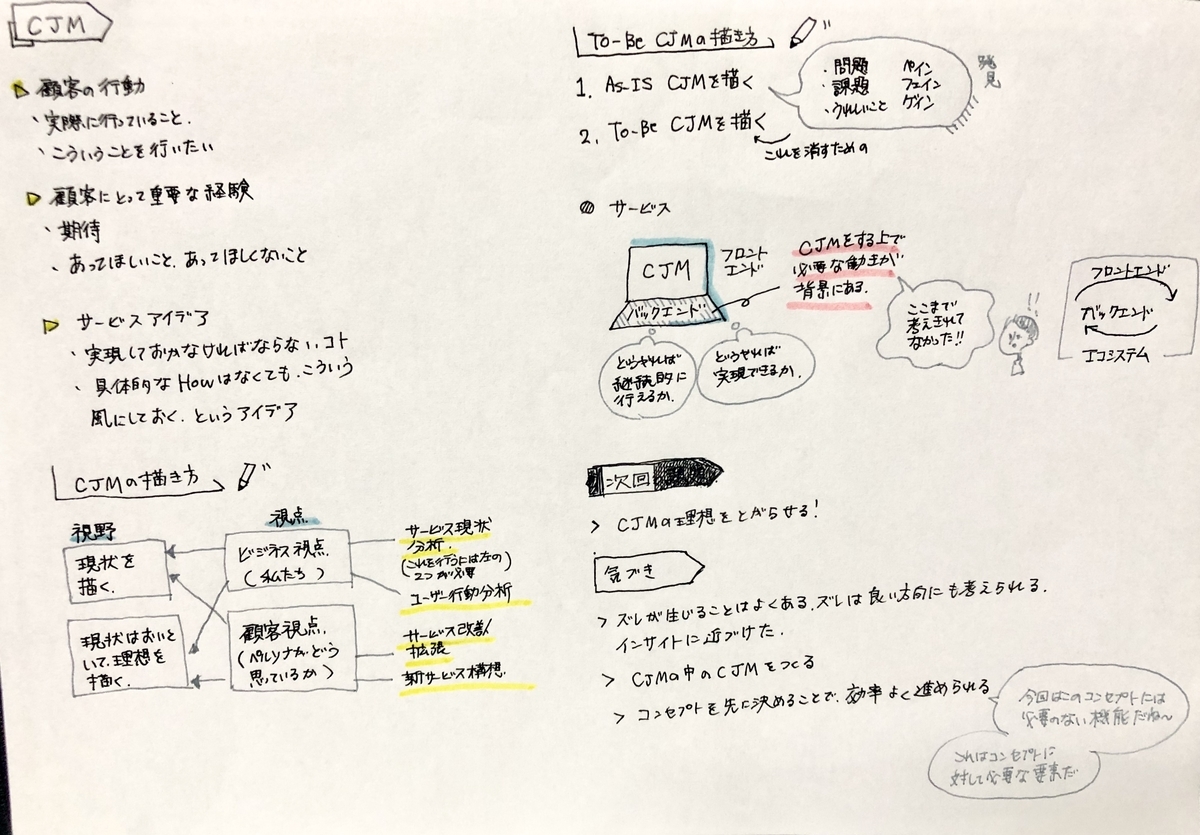 CJM
顧客の行動
・実際に行っていること.
・こういうことを行いたい
顧客にとって重要な経験
・期待
・あってほしいこと. あってほしくないこと
サービスアイデア
・実現しておかなければならない コト
・具体的な Howはなくても. こういう
風にしておく. というアイデア
CJMの描き方
視野
視点
現状を
描く.
現状はおいと
いて. 理想を
描く.
ビジネス視点.
(私たち)
顧客視点.
(ペルソナが. どう
思っているか)
サービス現状
分析.
(これを行うには左の
2つが必要)
ユーザー行動分析
サービス改善/
拡張
新サービス構想.
To-Be CJMの描き方
1. As-IS CJMを描く
・問題 ペイン
・課題
・うれしいこと ゲイン
発見
2. To-Be CJMを描く
これを消すための
サービス
CJM
バックエンド
フロント
エンド
CJMをする上で
必要な動きが
背景にある.
どうやれば
継続的に
行えるか.
どうやれば
実現できるか.
ここまで
考えきれて
なかった!!
!!
フロントエンド
バックエンド
エコシステム
次回
> CJMの理想をとがらせる!
気づき
> ズレが生じることはよくある. ズレは良い方向にも考えられる.
インサイトに近づけた.
> CJMの中のCJMをつくる
> コンセプトを先に決めることで. 効率よく進められる
今回はこのコンセプトには
必要のない機能だね〜
これはコンセプトに
対して必要な要素だ